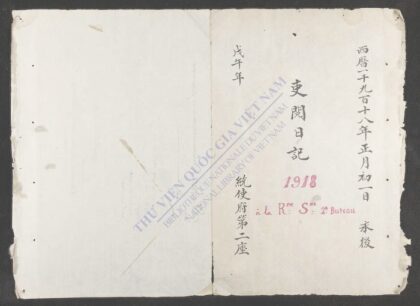 西曆一千九百十八年正月初一日 承後
吏閱日記
1918
à la Rce Sre 2e Bureau
統使府第二座
戊午年
THƯ VIỆN QUỐC GIA VIỆT NAM
BIBLIOTHÈQUE NATIONALE DU VIETNAM
NATIONAL LIBRARY OF VIETNAM